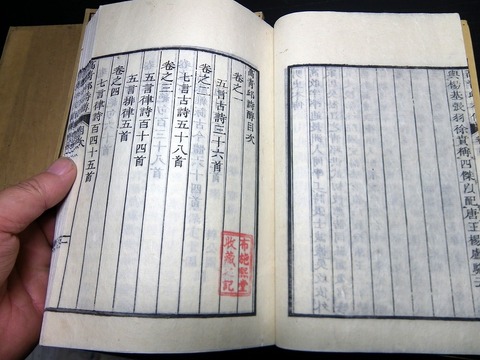 與楊基張羽徐賁稱四傑以配唐王楊盧駱云
高青邱詩醇目次
卷之一
五言古詩三十六首
卷之二
七言古詩五十八首
卷之三
五言律詩百十四首
五言排律十四首
卷之四
七言律詩百四十五首
布施熙堂
收藏之記